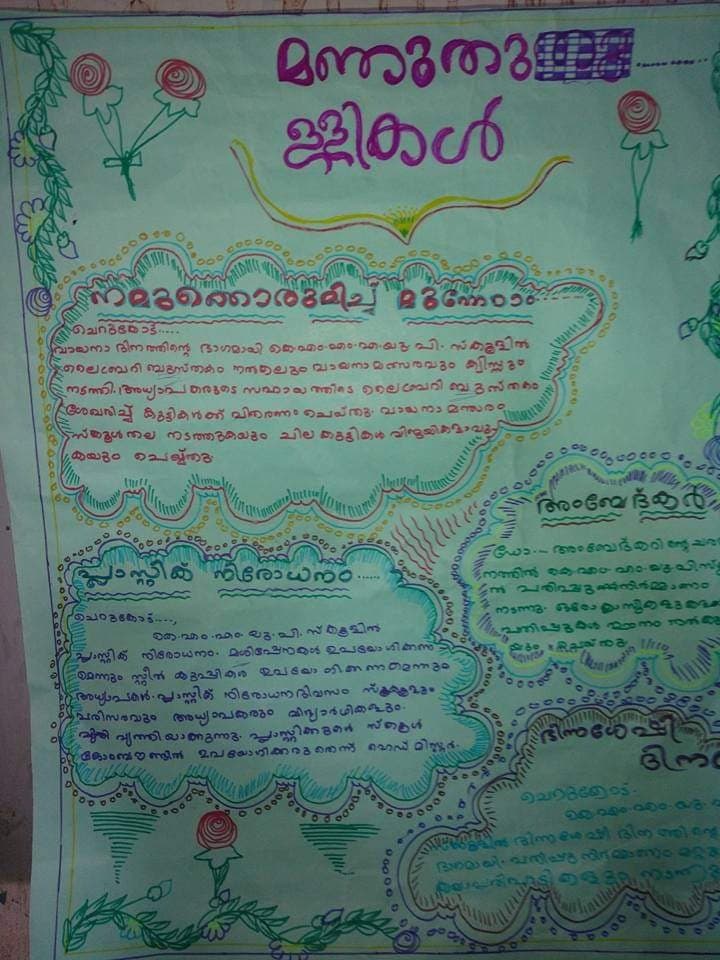 മഞ്ഞുതു
ള്ളികൾ
നമുക്കൊരുമിച്ച് മുന്നേറാം
ചെറുതോട്....
വായനാ ദിനത്തിന്റെ ഭാഗമായി കെ.എം.എം.എ.യു.പി. സ്കൂളിൽ
ലൈബ്രറി ബുസ്തകം നൽകലും വായനാ മത്സരവും ക്വിസ്സും
നടത്തി. അധ്യാപകരുടെ സഹായത്തിടെ ലൈബ്രറി ബുസ്തകം
ശേഖരിച്ച് കുട്ടികൾക്ക് വിതരണം ചെയ്തു. വായനാ മത്സരം
സ്കൂൾ തല നടത്തുകയും ചില കുട്ടികൾ വിജയികമാവു
കയും ചെയ്തു.
പ്ലാസ്റ്റിക് നിരോധനം.....
ചെറുതോട്....,
കെ.എം.എം.യു.പി. സ്കൂളിൽ
പ്ലാസ്റ്റിക് നിരോധനം. മഷിപേനകൾ ഉപയോഗിക്കണ
മെന്നും സ്റ്റീൽ കുപ്പികൾ ഉപയോഗിക്കണമെന്നും
അധ്യാപകർ. പ്ലാസ്റ്റിക് നിരോധനദിവസം സ്കൂളും
പരിസരവും അധ്യാപകരും വിദ്യാർഥികളും.
വൃത്തിയാക്കുന്നു. പ്ലാസ്റ്റിക്കുകൾ സ്കൂൾ
കോമ്പൗണ്ടിൽ ഉപയോഗിക്കരുതെന്ന് ഹെഡ് മിസ്റ്റർ.
അംബേദ്കർ
ഡോ... അംബേദ്കറിന്റെ ചര
നത്തിൽ കെ.എം.എം.യു.പി.സ്
ൽ പതിപ്പു നിർമ്മാണം
നടന്നു. ഒരോ ക്ലാസുകളുടെ
പതിപ്പുകൾ
ഭിന്നശേഷി
ദിന
ചെറുതോട്.
കെ.എം.എം.യു.
സ്കൂളിൽ ഭിന്നശേഷി ദിനത്തിന്റെ
ഭാഗമായി. പതിപ്പു നിർമ്മാണം മറ്റു